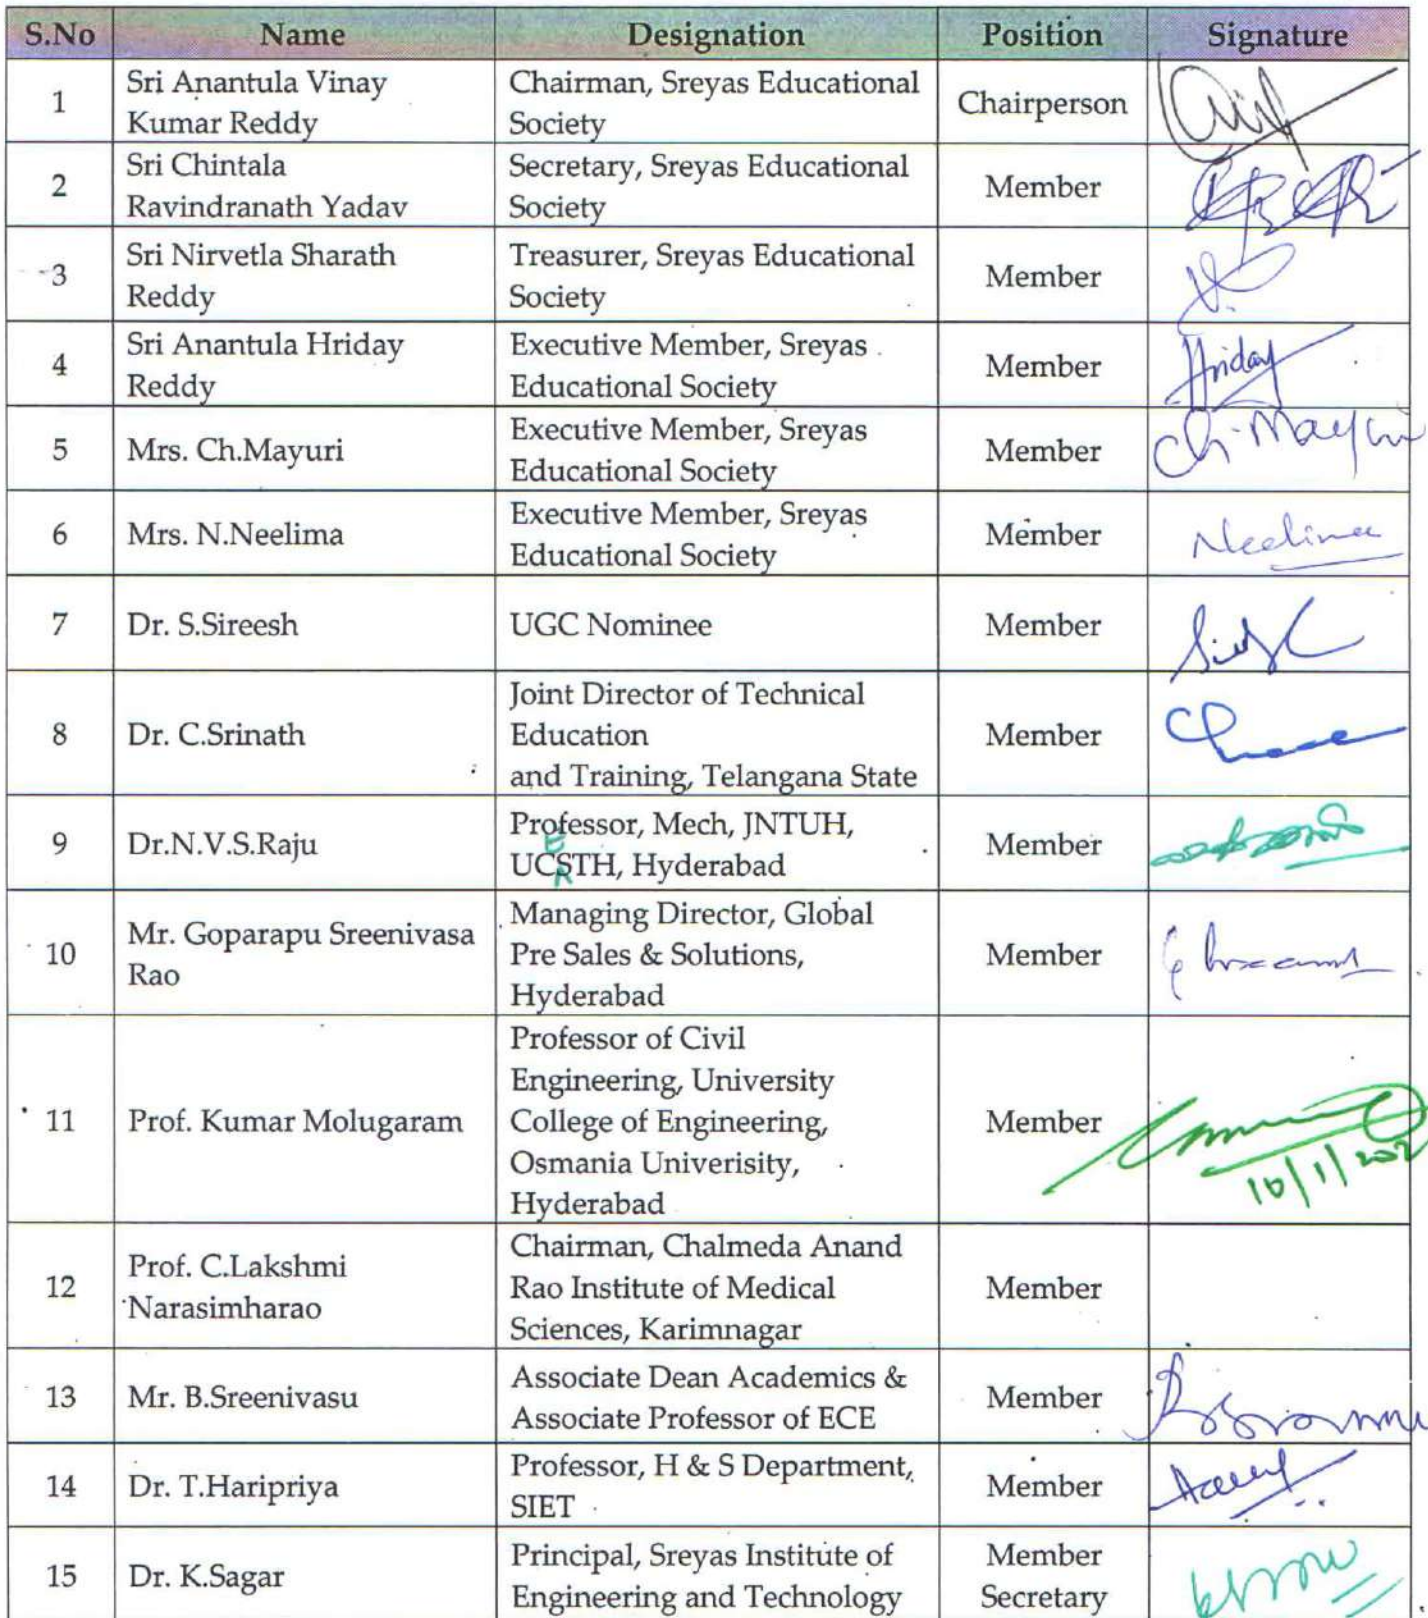 S.No Name Designation Position Signature
1 Sri Anantula Vinay Kumar Reddy Chairman, Sreyas Educational Society Chairperson
2 Sri Chintala Ravindranath Yadav Secretary, Sreyas Educational Society Member
3 Sri Nirvetla Sharath Reddy Treasurer, Sreyas Educational Society Member
4 Sri Anantula Hriday Reddy Executive Member, Sreyas Educational Society Member Hriday
5 Mrs. Ch.Mayuri Executive Member, Sreyas Educational Society Member Ch. Mayuri
6 Mrs. N.Neelima Executive Member, Sreyas Educational Society Member Neelima
7 Dr. S.Sireesh UGC Nominee Member
8 Dr. C.Srinath Joint Director of Technical Education and Training, Telangana State Member
9 Dr.N.V.S.Raju Professor, Mech, JNTUH, UCESTH, Hyderabad Member
10 Mr. Goparapu Sreenivasa Rao Managing Director, Global Pre Sales & Solutions, Hyderabad Member
11 Prof. Kumar Molugaram Professor of Civil Engineering, University College of Engineering, Osmania Univerisity, Hyderabad Member
12 Prof. C.Lakshmi Narasimharao Chairman, Chalmeda Anand Rao Institute of Medical Sciences, Karimnagar Member
13 Mr. B.Sreenivasu Associate Dean Academics & Associate Professor of ECE Member
14 Dr. T.Haripriya Professor, H & S Department, SIET Member
15 Dr. K.Sagar Principal, Sreyas Institute of Engineering and Technology Member Secretary